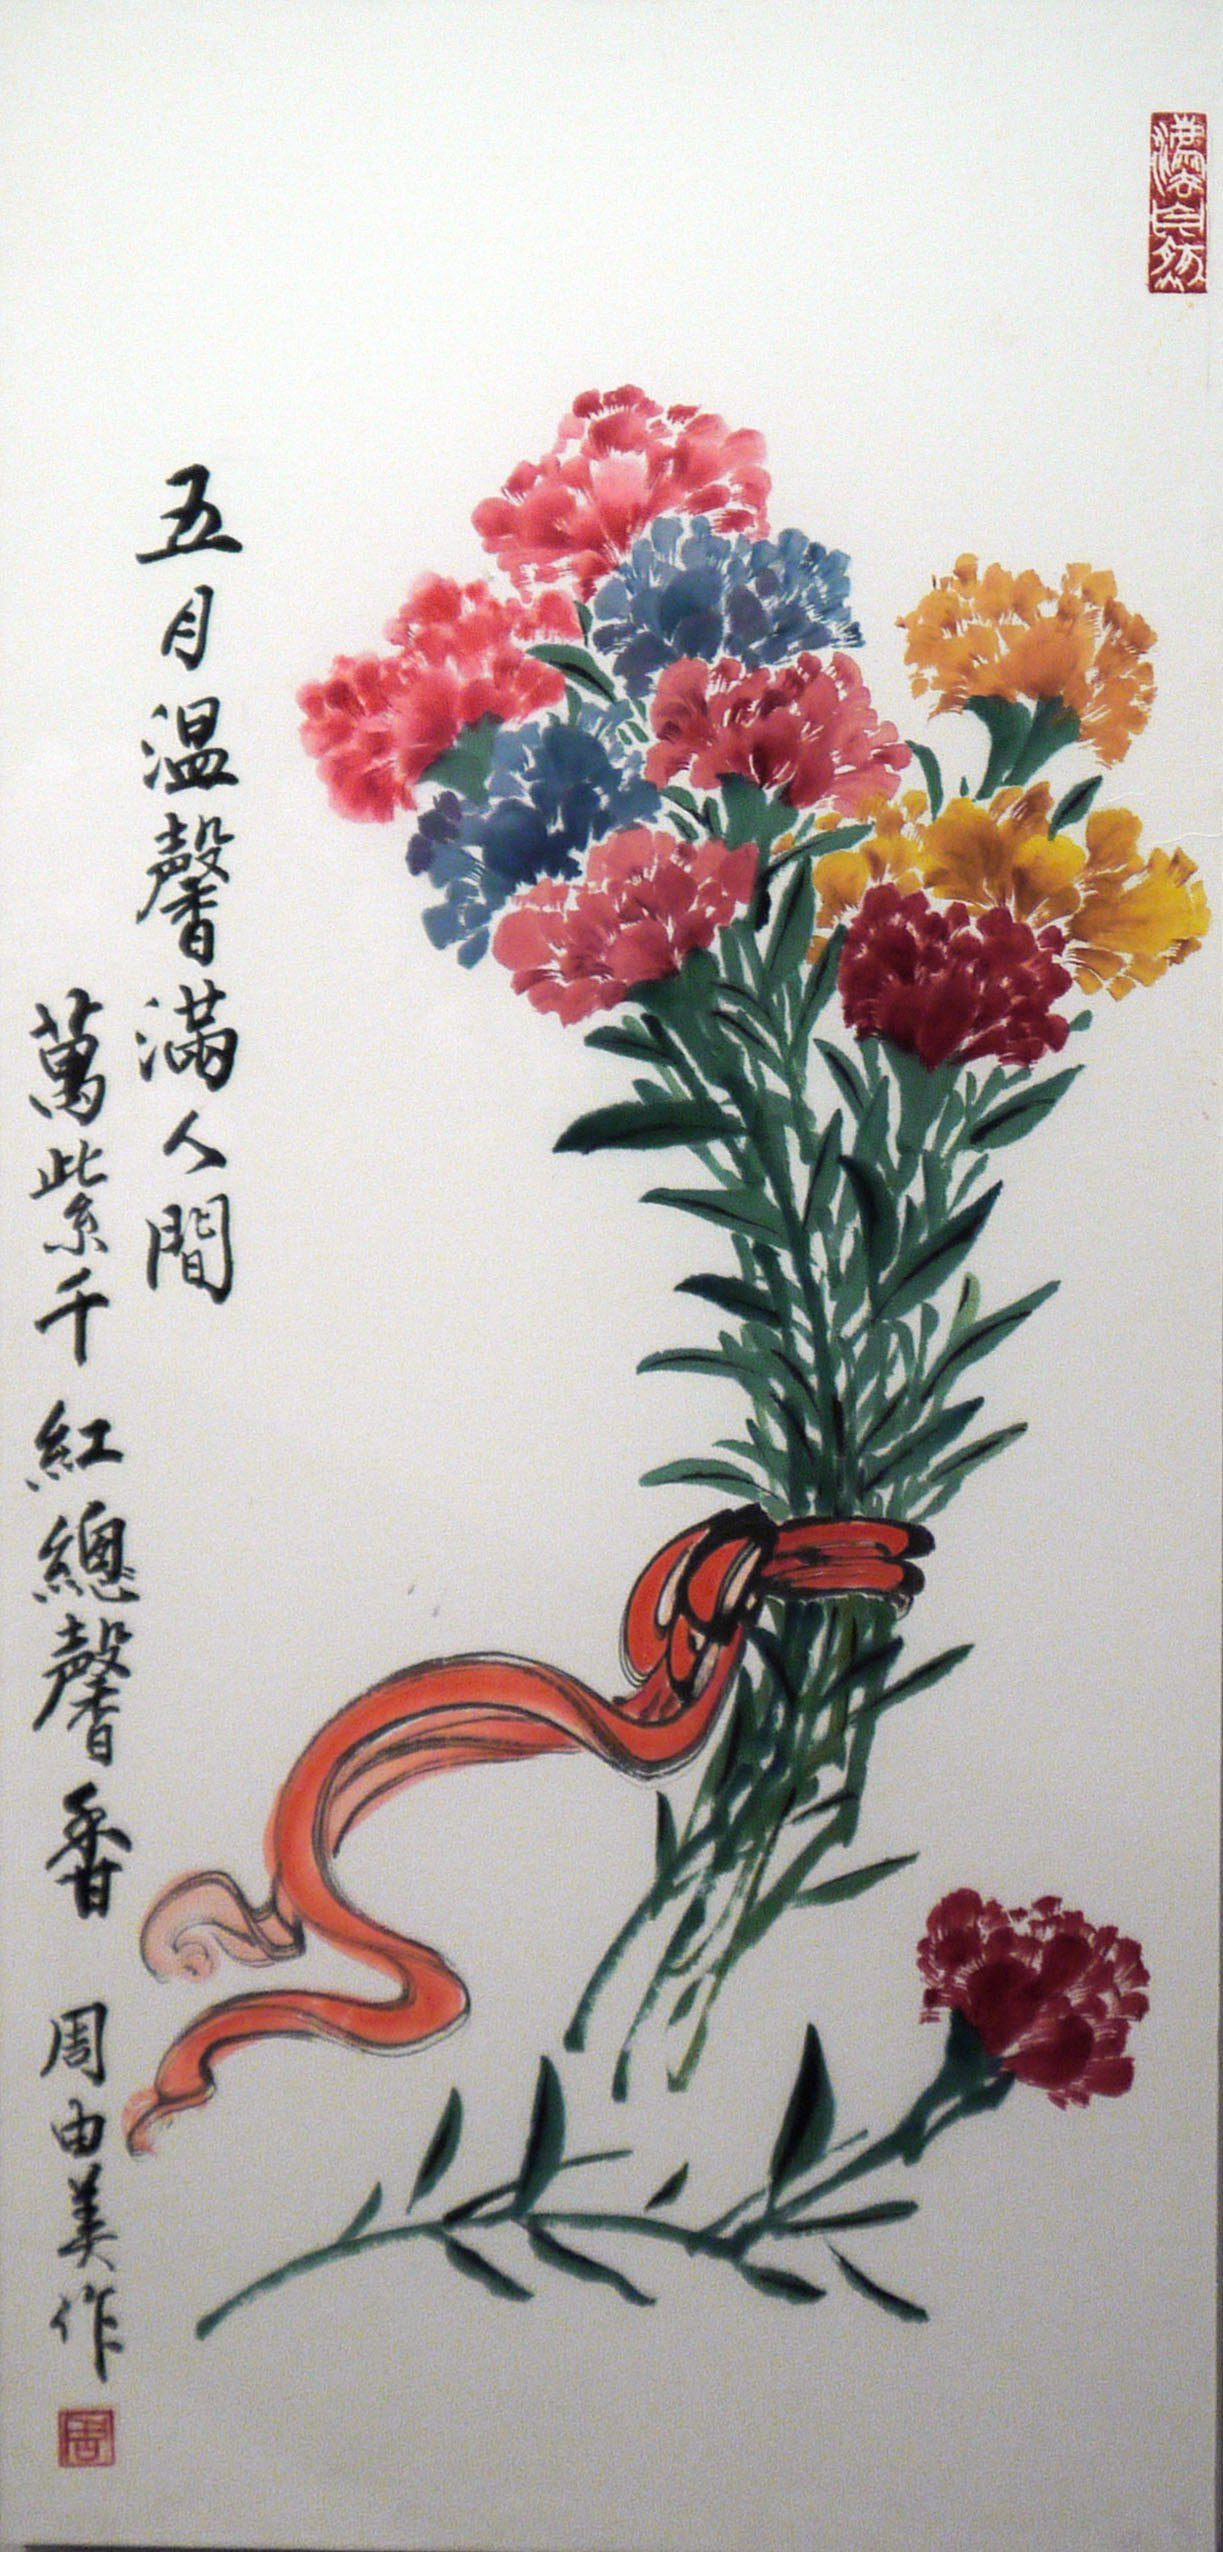 五月温馨滿人間
萬紫千紅總馨香 周由美作
周